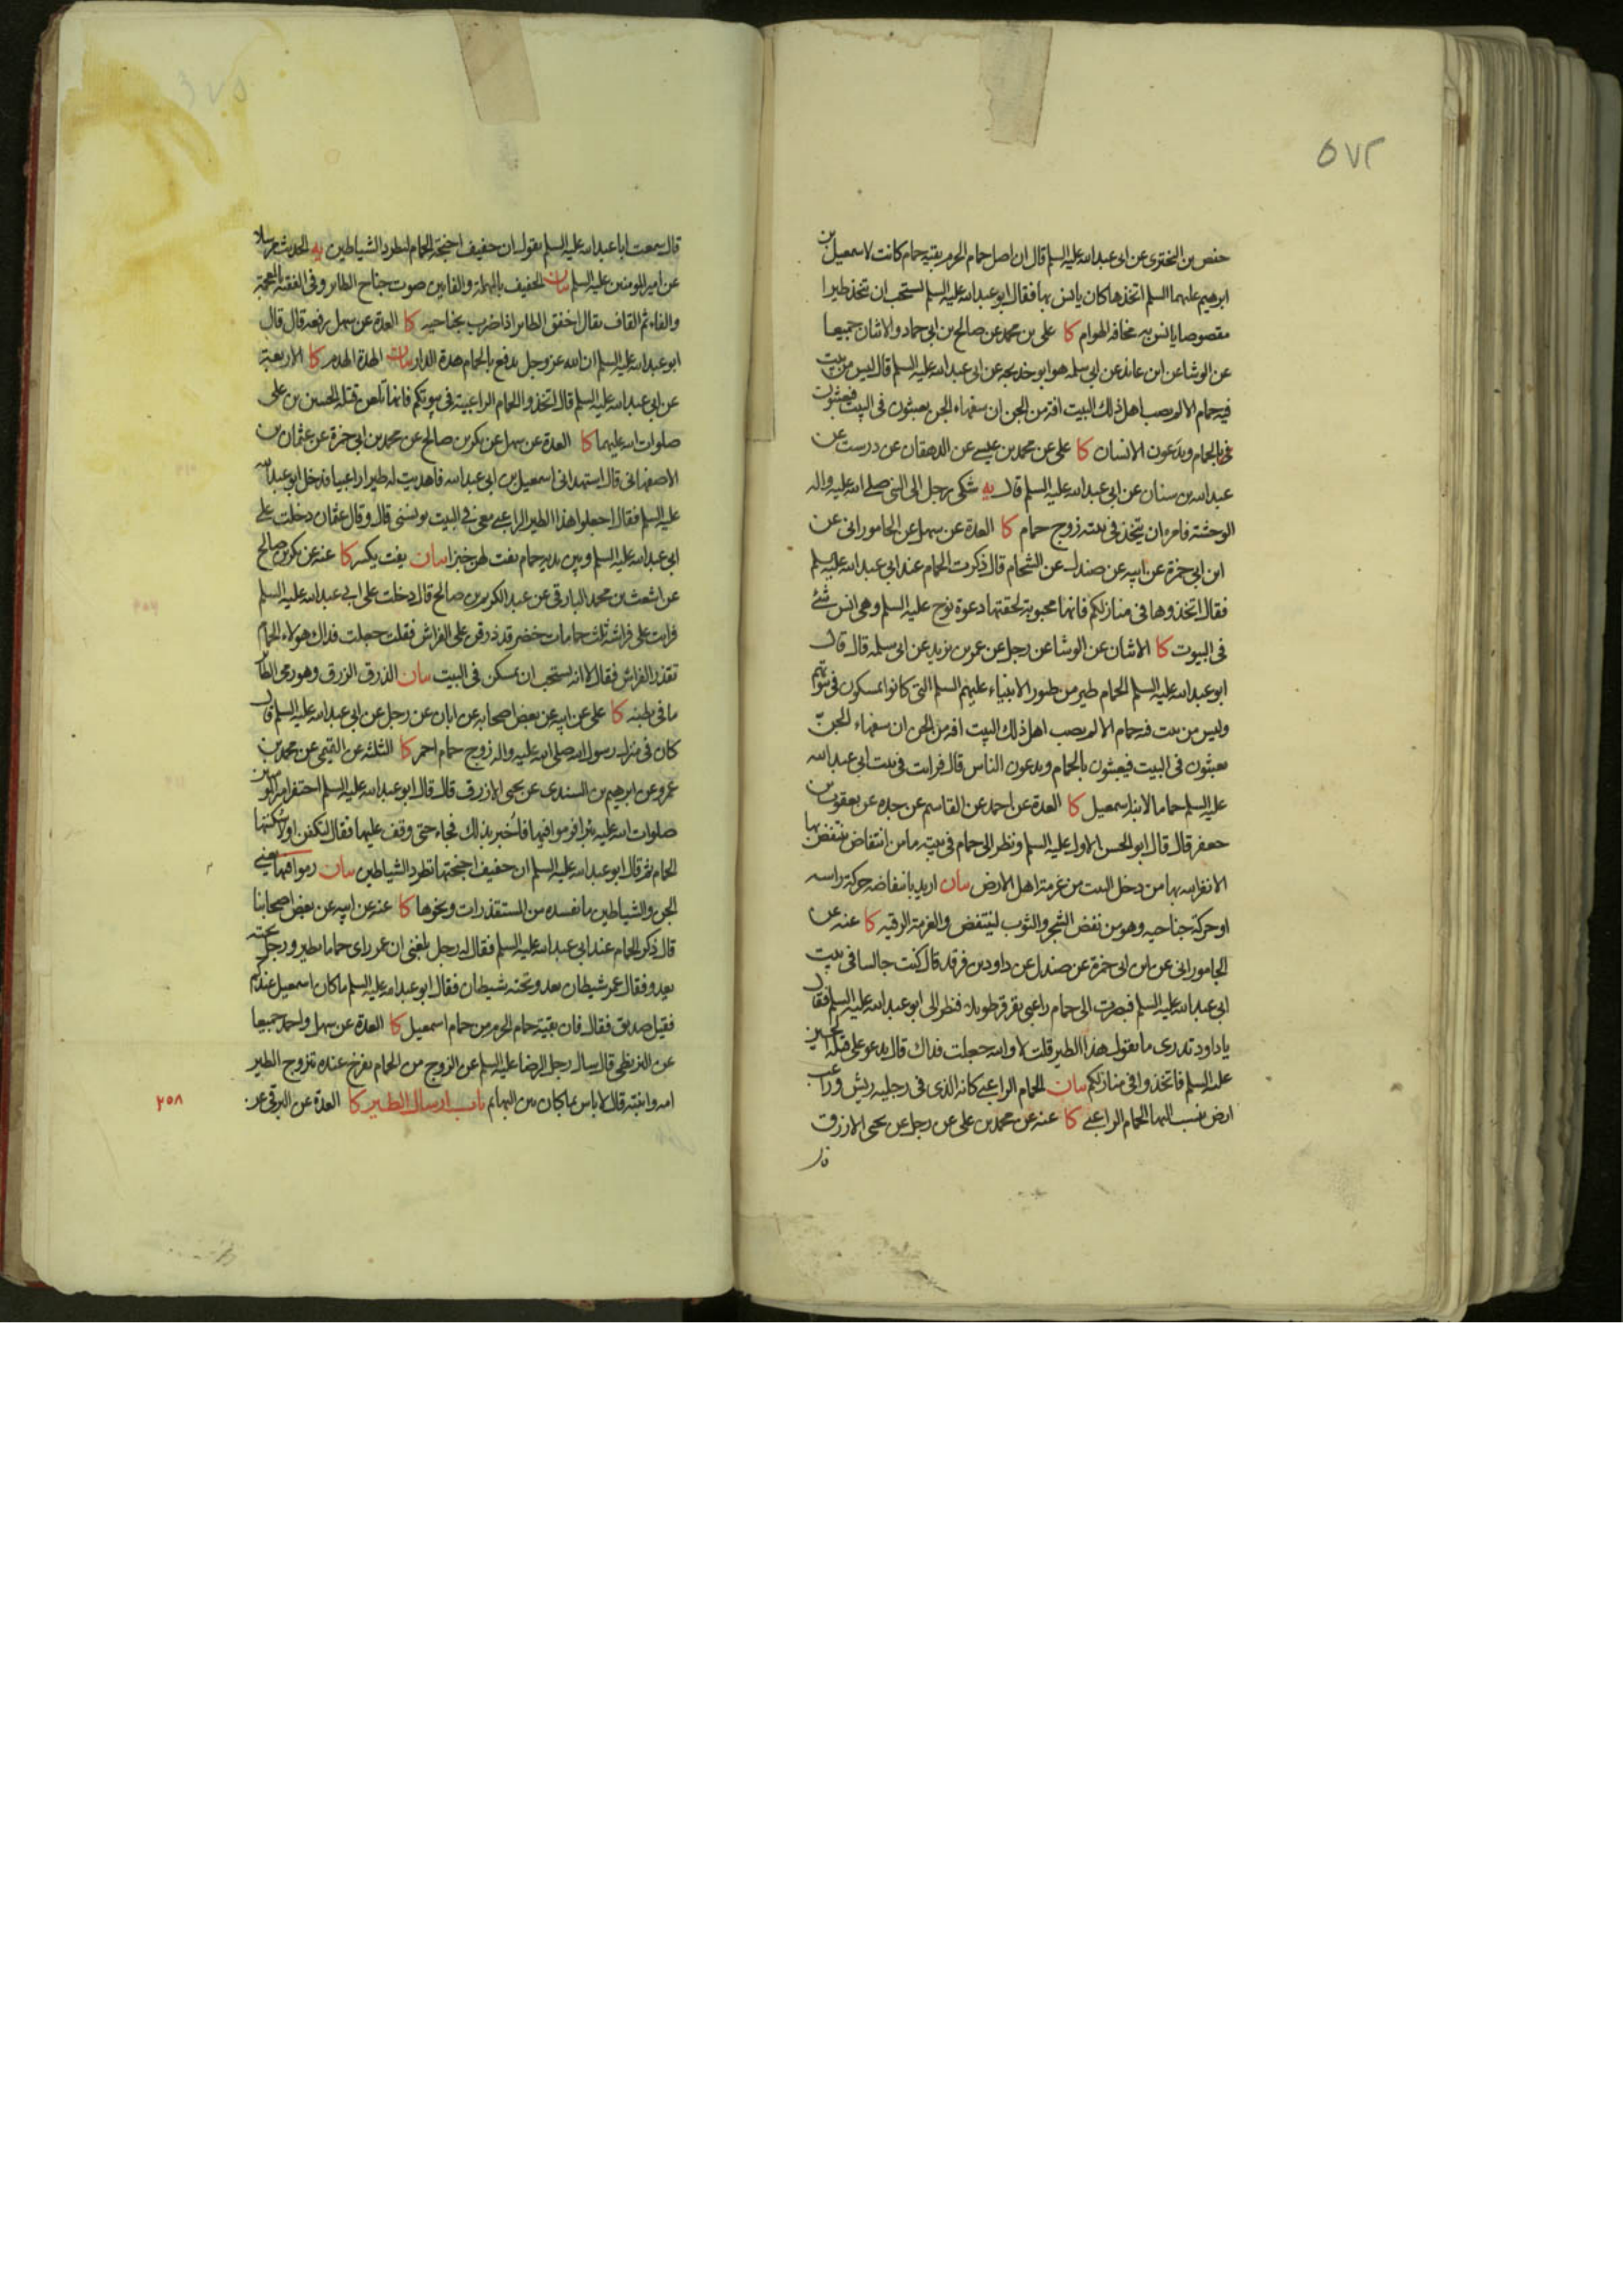 ٥٧٢
حفص بن البختري عن ابي عبد الله عليه السلم قال ان اصل حمام الحرم بقية حمام كانت لاسمعيل بن
ابرهيم عليهما السلم اتخذها كان يانس بها فقال ابو عبد الله عليه السلم يستحب ان تتخذ طيرا
مقصوصا يانس به مخافة الهوام كا علي بن محمد عن صالح بن ابي حماد والاثنان جميعا
عن الوشا عن ابن عائذ عن ابي سلمه هو ابو خديجه عن ابي عبد الله عليه السلم قال ليس من بيت
فيه حمام الا لم يصب اهل ذلك البيت افة من الجن ان سفهاء الجن يعبثون في البيت فيعبثون
بالحمام ويدعون الانسان كا علي عن محمد بن عيسى عن الدهقان عن درست عن
عبد الله بن سنان عن ابي عبد الله عليه السلم قال يه شكى رجل الى النبي صلى الله عليه واله
الوحشة فامره ان يتخذ في بيته زوج حمام كا العدة عن سهل عن الجاموراني عن
ابن ابي حمزة عن ابيه عن صندل عن الشحام قال ذكرت الحمام عند ابي عبد الله عليه السلم
فقال اتخذوها في منازلكم فانها محبوبة لحقتها دعوة نوح عليه السلم وهي انس شئ
في البيوت كا الاثنان عن الوشا عن رجل عن عمر بن يزيد عن ابي سلمه قال قال
ابو عبد الله عليه السلم الحمام طير من طيور الانبياء عليهم السلم التي كانوا يمسكون في بيوتهم
وليس من بيت فيه حمام الا لم يصب اهل ذلك البيت افة من الجن ان سفهاء الجن
يعبثون في البيت فيعبثون بالحمام ويدعون الناس قال فرايت في بيت ابي عبد الله
عليه السلم حماما لابنه اسمعيل كا العدة عن احمد عن القاسم عن جده عن يعقوب بن
جعفر قال قال ابو الحسن الاول عليه السلم ونظر الى حمام في بيته ما من انتفاض ينتفض بها
الا نفر الله بها من دخل البيت من عزمة اهل الارض بيان اريد بانتفاضه حركة راسه
او حركة جناحيه وهو من نفض الشجر والثوب لينتفض والعزمة الرقية كا عنه عن
الجاموراني عن ابن ابي حمزة عن صندل عن داود بن فرقد قال كنت جالسا في بيت
ابي عبد الله عليه السلم فبصرت الى حمام راعبي يقرقر طويلا فنظر الي ابو عبد الله عليه السلم فقال
يا داود تدري ما يقول هذا الطير قلت لا والله جعلت فداك قال يدعو على قتلة الحسين
عليه السلم فاتخذوا في منازلكم بيان الحمام الراعبي كانه الذي في رجليه ريش وراعب
ارض ينسب اليها الحمام الراعبي كا عنه عن محمد بن علي عن رجل عن يحيى الازرق
قال سمعت ابا عبد الله عليه السلم يقول ان حفيف اجنحة الحمام لتطرد الشياطين يه الحديث مرسلا
عن امير المومنين عليه السلم بيان الحفيف بالمهملة والفاءين صوت جناح الطاير وفي الفقيه بالمعجمة
والفاء ثم القاف يقال اخفق الطاير اذا ضرب بجناحيه كا العدة عن سهل رفعه قال قال
ابو عبد الله عليه السلم ان الله عز وجل يدفع بالحمام هدة الدار بيان الهدة الهدم كا الاربعة
عن ابي عبد الله عليه السلم قال اتخذوا الحمام الراعبية في بيوتكم فانها تلعن قتلة الحسين بن علي
صلوات الله عليهما كا العدة عن سهل عن بكر بن صالح عن محمد بن ابي حمزة عن عثمان بن
الاصفهاني قال استهداني اسمعيل بن ابي عبد الله فاهديت له طيرا راعبيا فدخل ابو عبد الله
عليه السلم فقال اجعلوا هذا الطير الراعبي معي في البيت يونسني قال وقال عثمان دخلت على
ابي عبد الله عليه السلم وبين يديه حمام يفت لهن خبزا بيان يفت يكسر كا عنه عن بكر بن صالح
عن اشعث بن محمد البارقي عن عبد الكريم بن صالح قال دخلت على ابي عبد الله عليه السلم
فرايت على فراشه ثلث حمامات خضر قد ذرقن على الفراش فقلت جعلت فداك هولاء الحمام
تقذر الفراش فقال لا انه يستحب ان تمسكن في البيت بيان الذرق الزرق وهو رمى الطاير
ما في بطنه كا علي عن ابيه عن بعض اصحابه عن ابان عن رجل عن ابي عبد الله عليه السلم قال
كان في منزل رسول الله صلى الله عليه واله زوج حمام احمر كا الثلثة عن القيمي عن محمد بن
عمرو عن ابرهيم بن السندي عن يحيى الازرق قال قال ابو عبد الله عليه السلم احتفر امير المومنين
صلوات الله عليه بئرا فرموا فيها فاخبر بذلك فجاء حتى وقف عليها فقال لتكفن او لاسكنتها
الحمام ثم قال ابو عبد الله عليه السلم ان حفيف اجنحتها تطرد الشياطين بيان رموا فيها يعني
الجن والشياطين ما تفسده من المستقذرات ونحوها كا عنه عن ابيه عن بعض اصحابنا
قال ذكر الحمام عند ابي عبد الله عليه السلم فقال له رجل بلغني ان عمر راى حماما يطير ورجل تحته
يعدو فقال عمر شيطان يعدو تحته شيطان فقال ابو عبد الله عليه السلم ما كان اسمعيل عندكم
فقيل صديق فقال فان بقية حمام الحرم من حمام اسمعيل كا العدة عن سهل واحمد جميعا
عن البزنطي قال سال رجل الرضا عليه السلم عن الزوج من الحمام يفرخ عنده تتزوج الطير
امه وابنته قال لا باس بما كان بين البهايم باب ارسال الطير كا العدة عن البرقي عن
٢٥٨